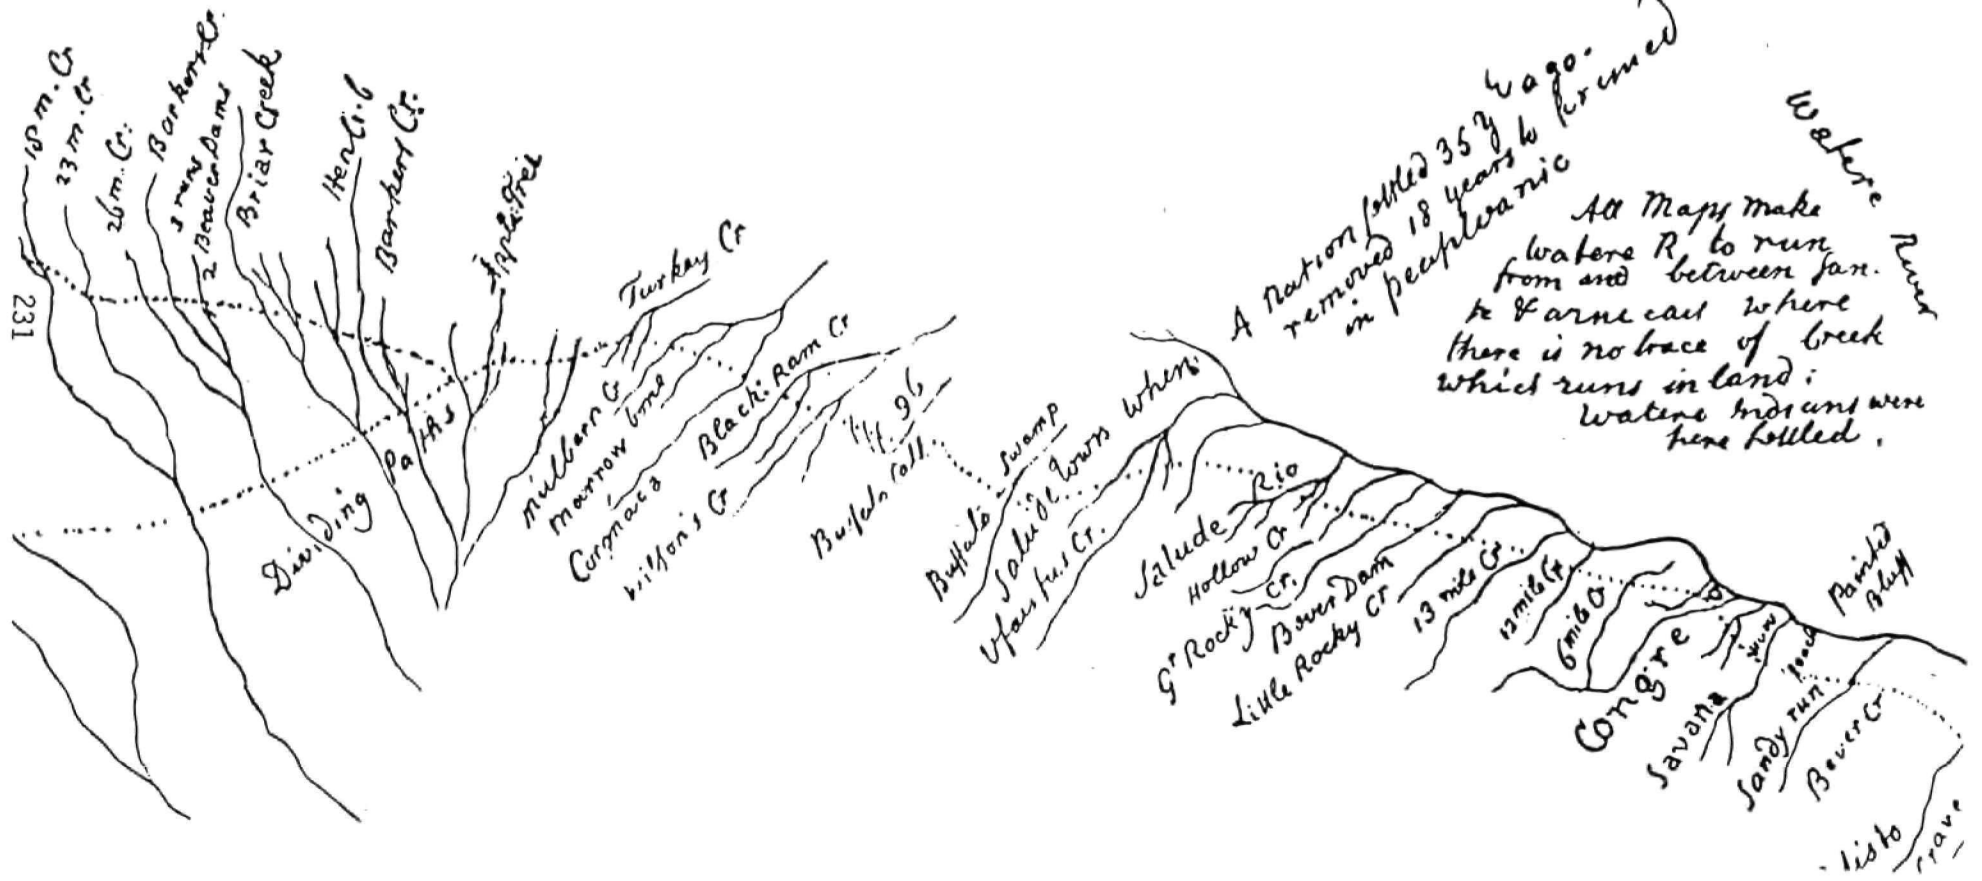 18 m. Cr
23 m. Cr
26 m. Cr:
Barkers Cr.
3 runs
2 Beaver Dams
Briar Creek
Hen Ci. 6
Barkers Cr:
Aple Tree
231
Dividing Paths
Turkey Cr
Mulbern Cr
Marrow bone
Cormaca
Wilson's Cr
Black: Ram Cr
96
Bufalo Call
Buffalo Swamp
Saludje Towns when
A Nation settled 35 y W ago.
removed 18 years to
in pecuplvanic
Watere River
All Maps make
Watere R. to run
from and between San.
te & arne cais where
there is no trace of Creek
which runs in land:
Watere Indians were
here settled.
Salude Rio
Hollow Cr
Gr Rocky Cr.
Bever Dam
Little Rocky Cr
13 mile Cr
12 mile Cr.
6 mile Cr
Congre
Savana
Sandy run
Bever Cr
Painted
Bluff